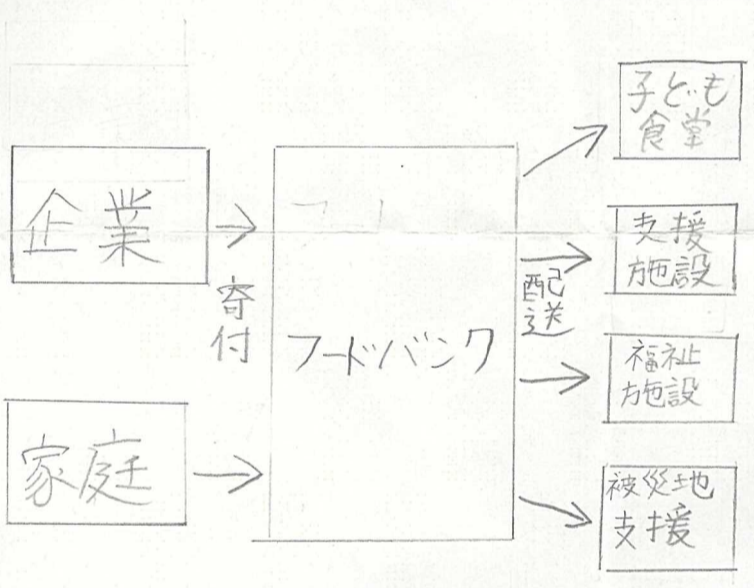 企業
寄付
家庭
フードバンク
配送
子ども
食堂
支援
施設
福祉
施設
被災地
支援